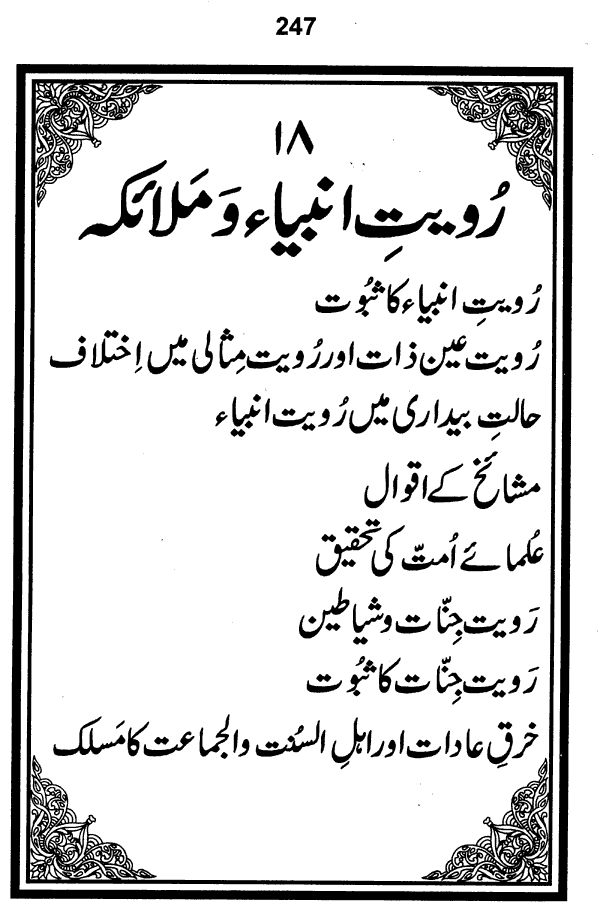 247
۱۸
رُویتِ انبیاء وَ مَلائکہ
رُویتِ انبیاء کا ثبُوت
رُویت عین ذات اور رُویت مِثالی میں اِختلاف
حالتِ بیداری میں رُویت انبیاء
مشائخ کے اقوال
عُلمائے اُمتّ کی تحقیق
رَویت جِنّات و شیاطین
رَویت جِنّات کا ثبُوت
خرقِ عادات اور اہلِ السُنت والجماعت کا مَسلک